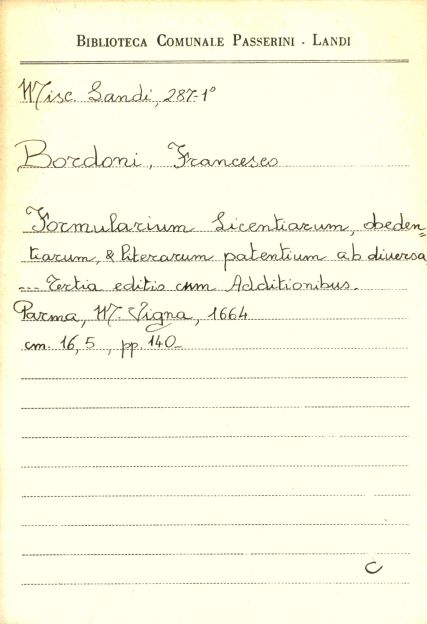 BIBLIOTECA COMUNALE PASSERINI - LANDI
Misc. Landi, 287-1°
Bordoni, Francesco
Formularium Licentiarum, obeden=
tiarum, & literarum patentium ab diversa
--- Tertia editis cum Additionibus.
Parma, M. Vigna, 1664
cm. 16,5, pp. 140_
C